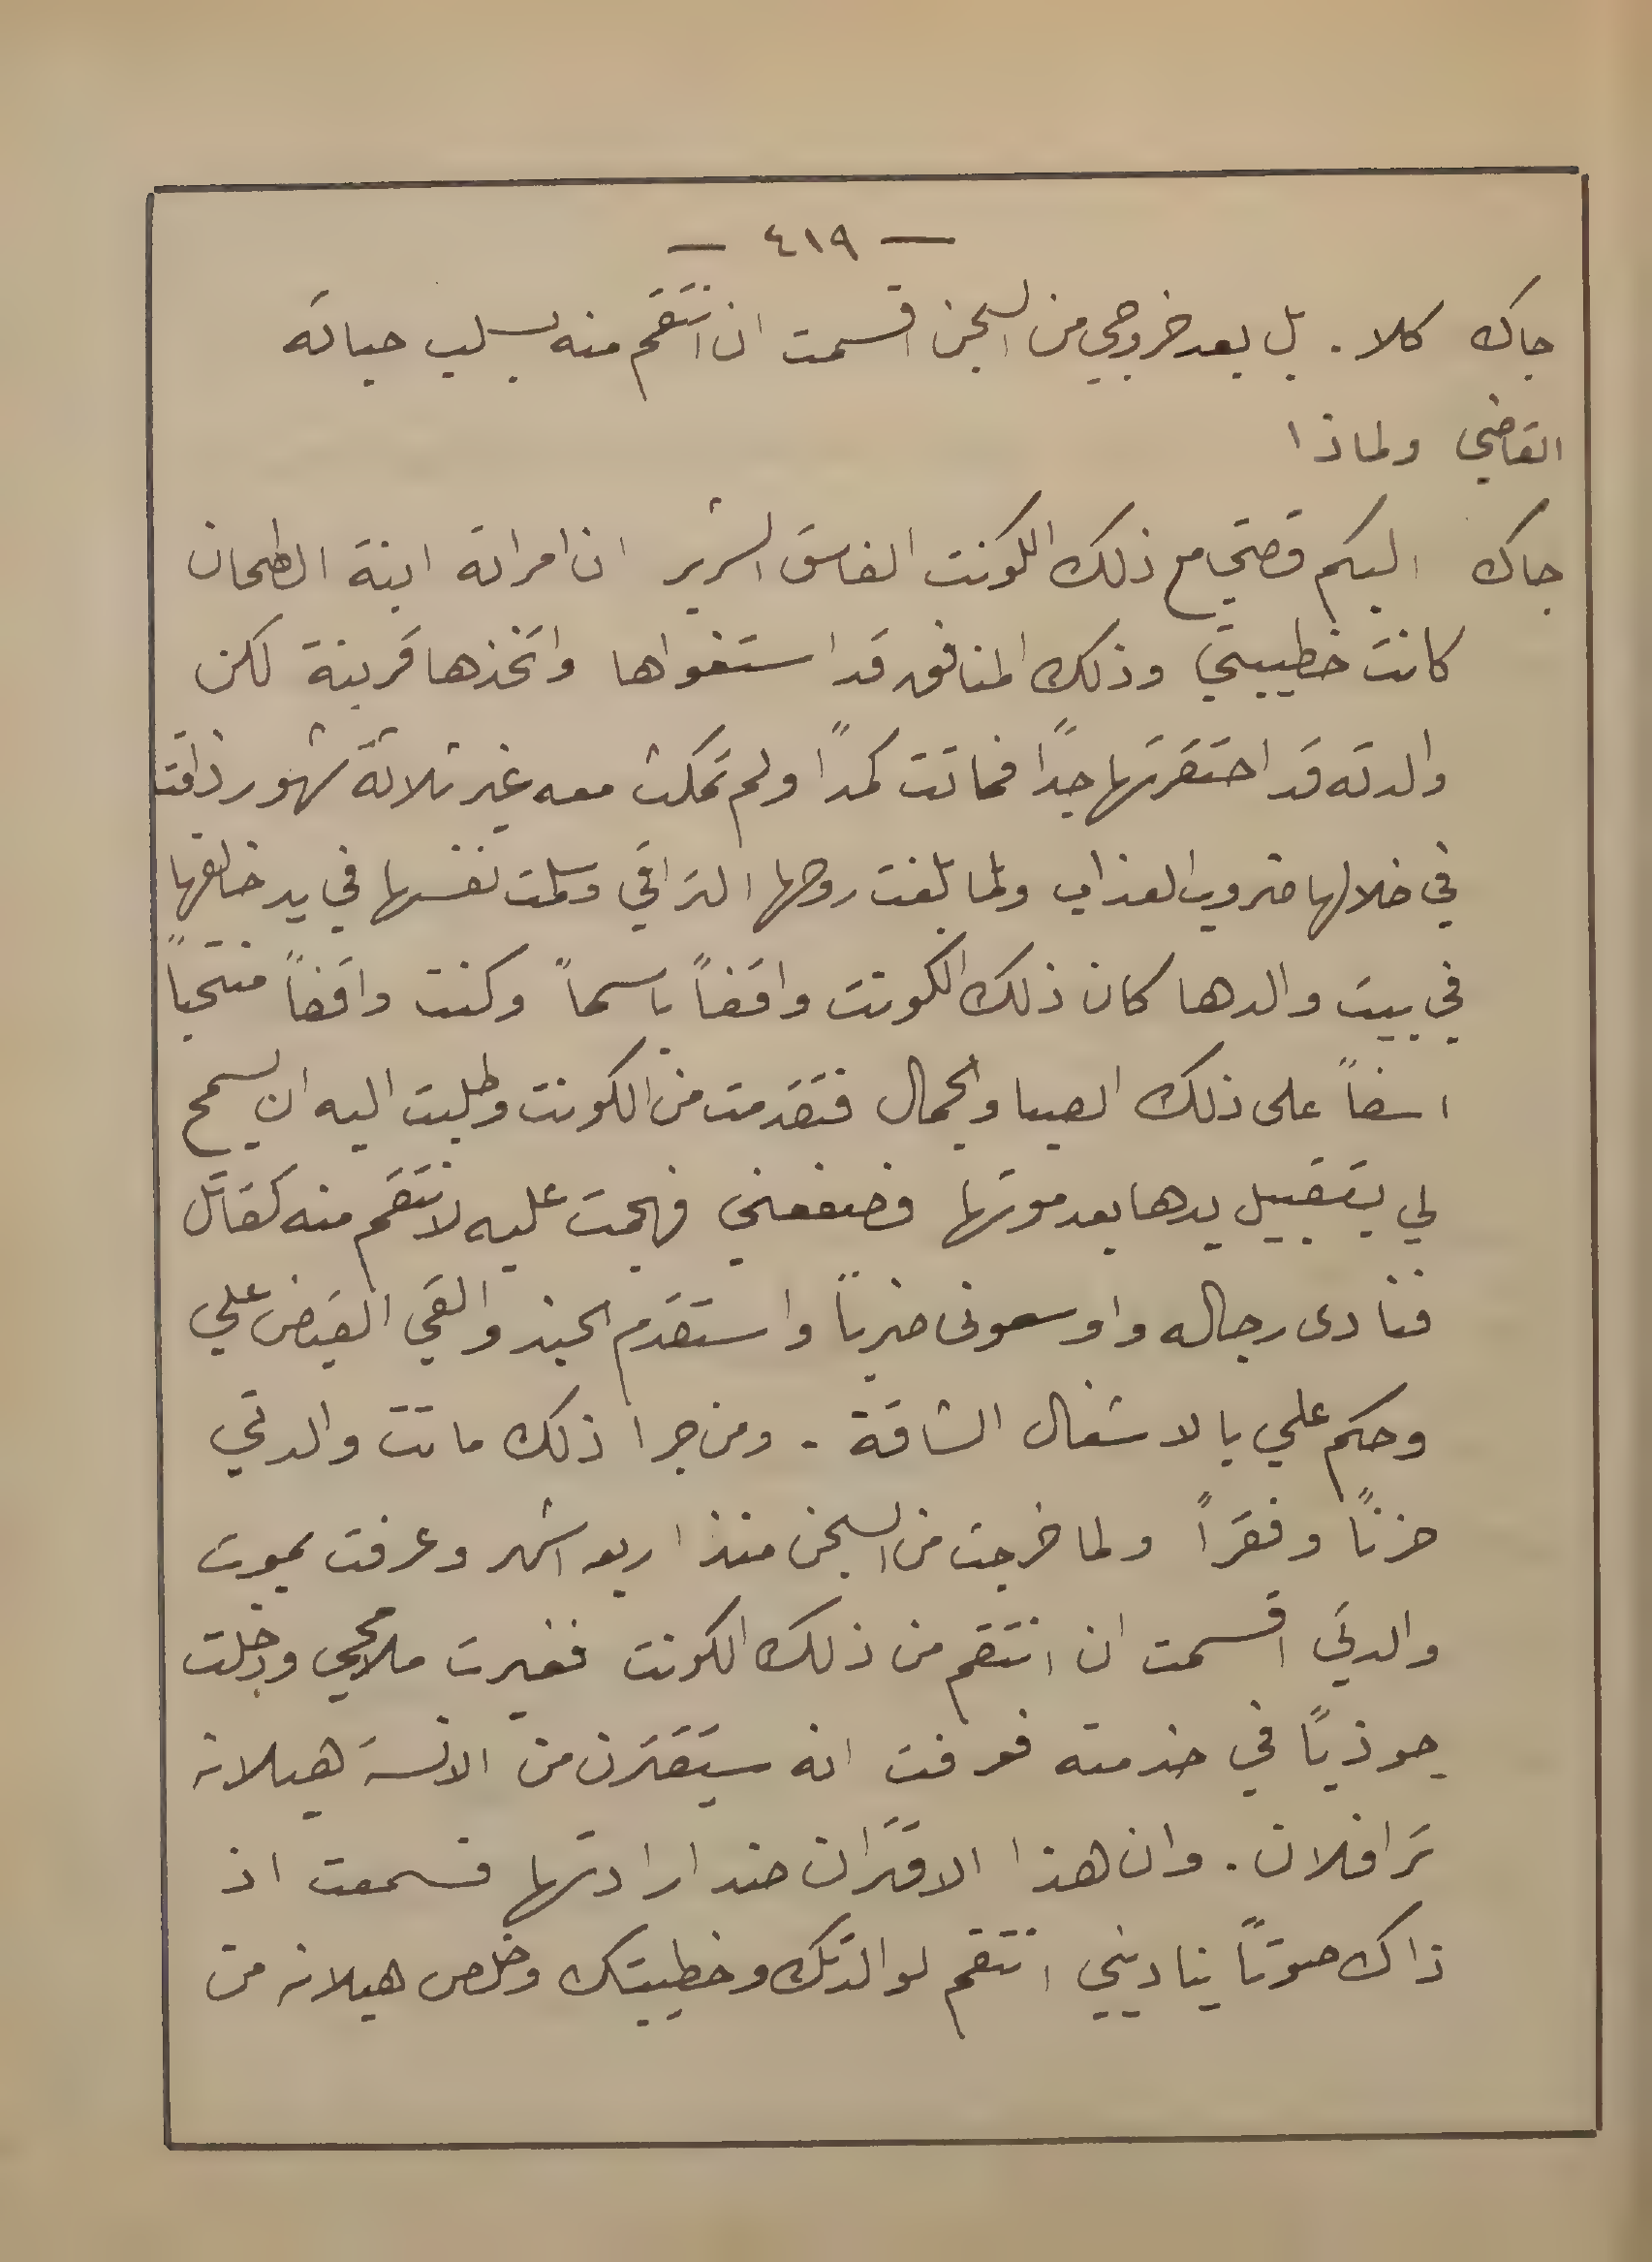 — ٤١٩ —
جاك كلا . بل بعد خروجي من السجن اقسمت ان انتقم منه بسلب حياته
القاضي ولماذا
جاك اليكم قصتي مع ذلك الكونت الفاسق الشرير ان امراته ابنة الطحان
كانت خطيبتي وذلك المنافق قد استغواها واتخذها قرينة لكن
والدته قد احتقرتها جدًا فماتت كمدًا ولم تمكث معه غير ثلاثة شهور ذاقت
في خلالها ضروب العذاب ولما بلغت روحها التراقي وسلمت نفسها في يد خالقها
في بيت والدها كان ذلك الكونت واقفاً باسماً وكنت واقفاً منتحباً
اسفاً على ذلك الصبا والجمال فتقدمت من الكونت وطلبت اليه ان يسمح
لي بتقبيل يدها بعد موتها فصفعني فهجمت عليه لانتقم منه كقاتل
فنادى رجاله واوسعونى ضرباً واستقدم الجند والقي القبض علي
وحكم علي بالاشغال الشاقة . ومن جرا ذلك ماتت والدتي
حزنًا وفقرًا ولما خرجت من السجن منذ اربعه اشهر وعرفت بموت
والدتي اقسمت ان انتقم من ذلك الكونت فغيرت ملامحي ودخلت
جوذيًا في خدمته فعرفت انه سيقترن من الانسة هيلانه
ترافلان . وان هذا الاقتران ضد ارادتها فسمعت اذ
ذاك صوتاً يناديني انتقم لوالدتك وخطيبتك وخلص هيلانه من